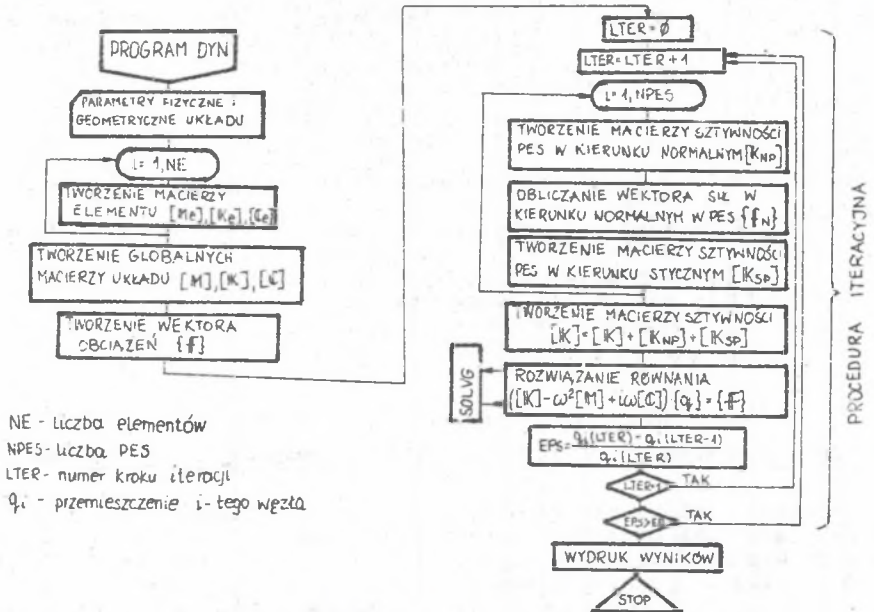 PROGRAM DYN
PARAMETRY FIZYCZNE I
GEOMETRYCZNE UKŁADU
i= 1, NE
TWORZENIE MACIERZY
ELEMENTU [Me],[Ke],[Ce]
TWORZENIE GLOBALNYCH
MACIERZY UKŁADU [M],[K],[C]
TWORZENIE WEKTORA
OBCIĄŻEŃ {f}
NE - liczba elementów
NPES - liczba PES
LTER - numer kroku iteracji
qi - przemieszczenie i-tego węzła
LTER=Ø
LTER=LTER+1
i=1, NPES
TWORZENIE MACIERZY SZTYWNOŚCI
PES W KIERUNKU NORMALNYM [KNP]
OBLICZANIE WEKTORA SIŁ W
KIERUNKU NORMALNYM W PES {fN}
TWORZENIE MACIERZY SZTYWNOŚCI
PES W KIERUNKU STYCZNYM [KSP]
TWORZENIE MACIERZY SZTYWNOŚCI
[K]=[K]+[KNP]+[KSP]
SOLVG
ROZWIĄZANIE RÓWNANIA
([K]-ω²[M]+iω[C]){q}={F}
EPS= qi(LTER)-qi(LTER-1)
qi(LTER)
LTER=1
TAK
EPS>E0
TAK
WYDRUK WYNIKÓW
STOP
PROCEDURA ITERACYJNA